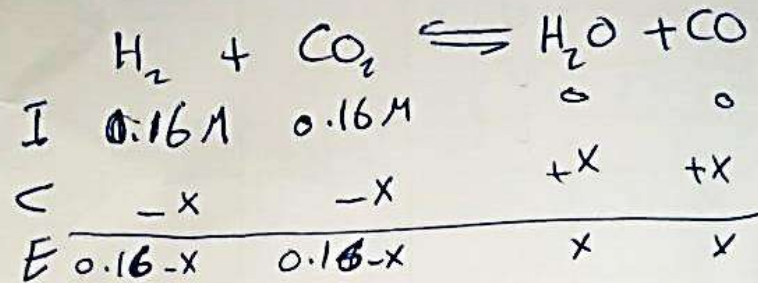 H₂ + CO₂ ⇌ H₂O + CO
I 0.16M 0.16M 0 0
C -x -x +x +x
E 0.16-x 0.16-x x x